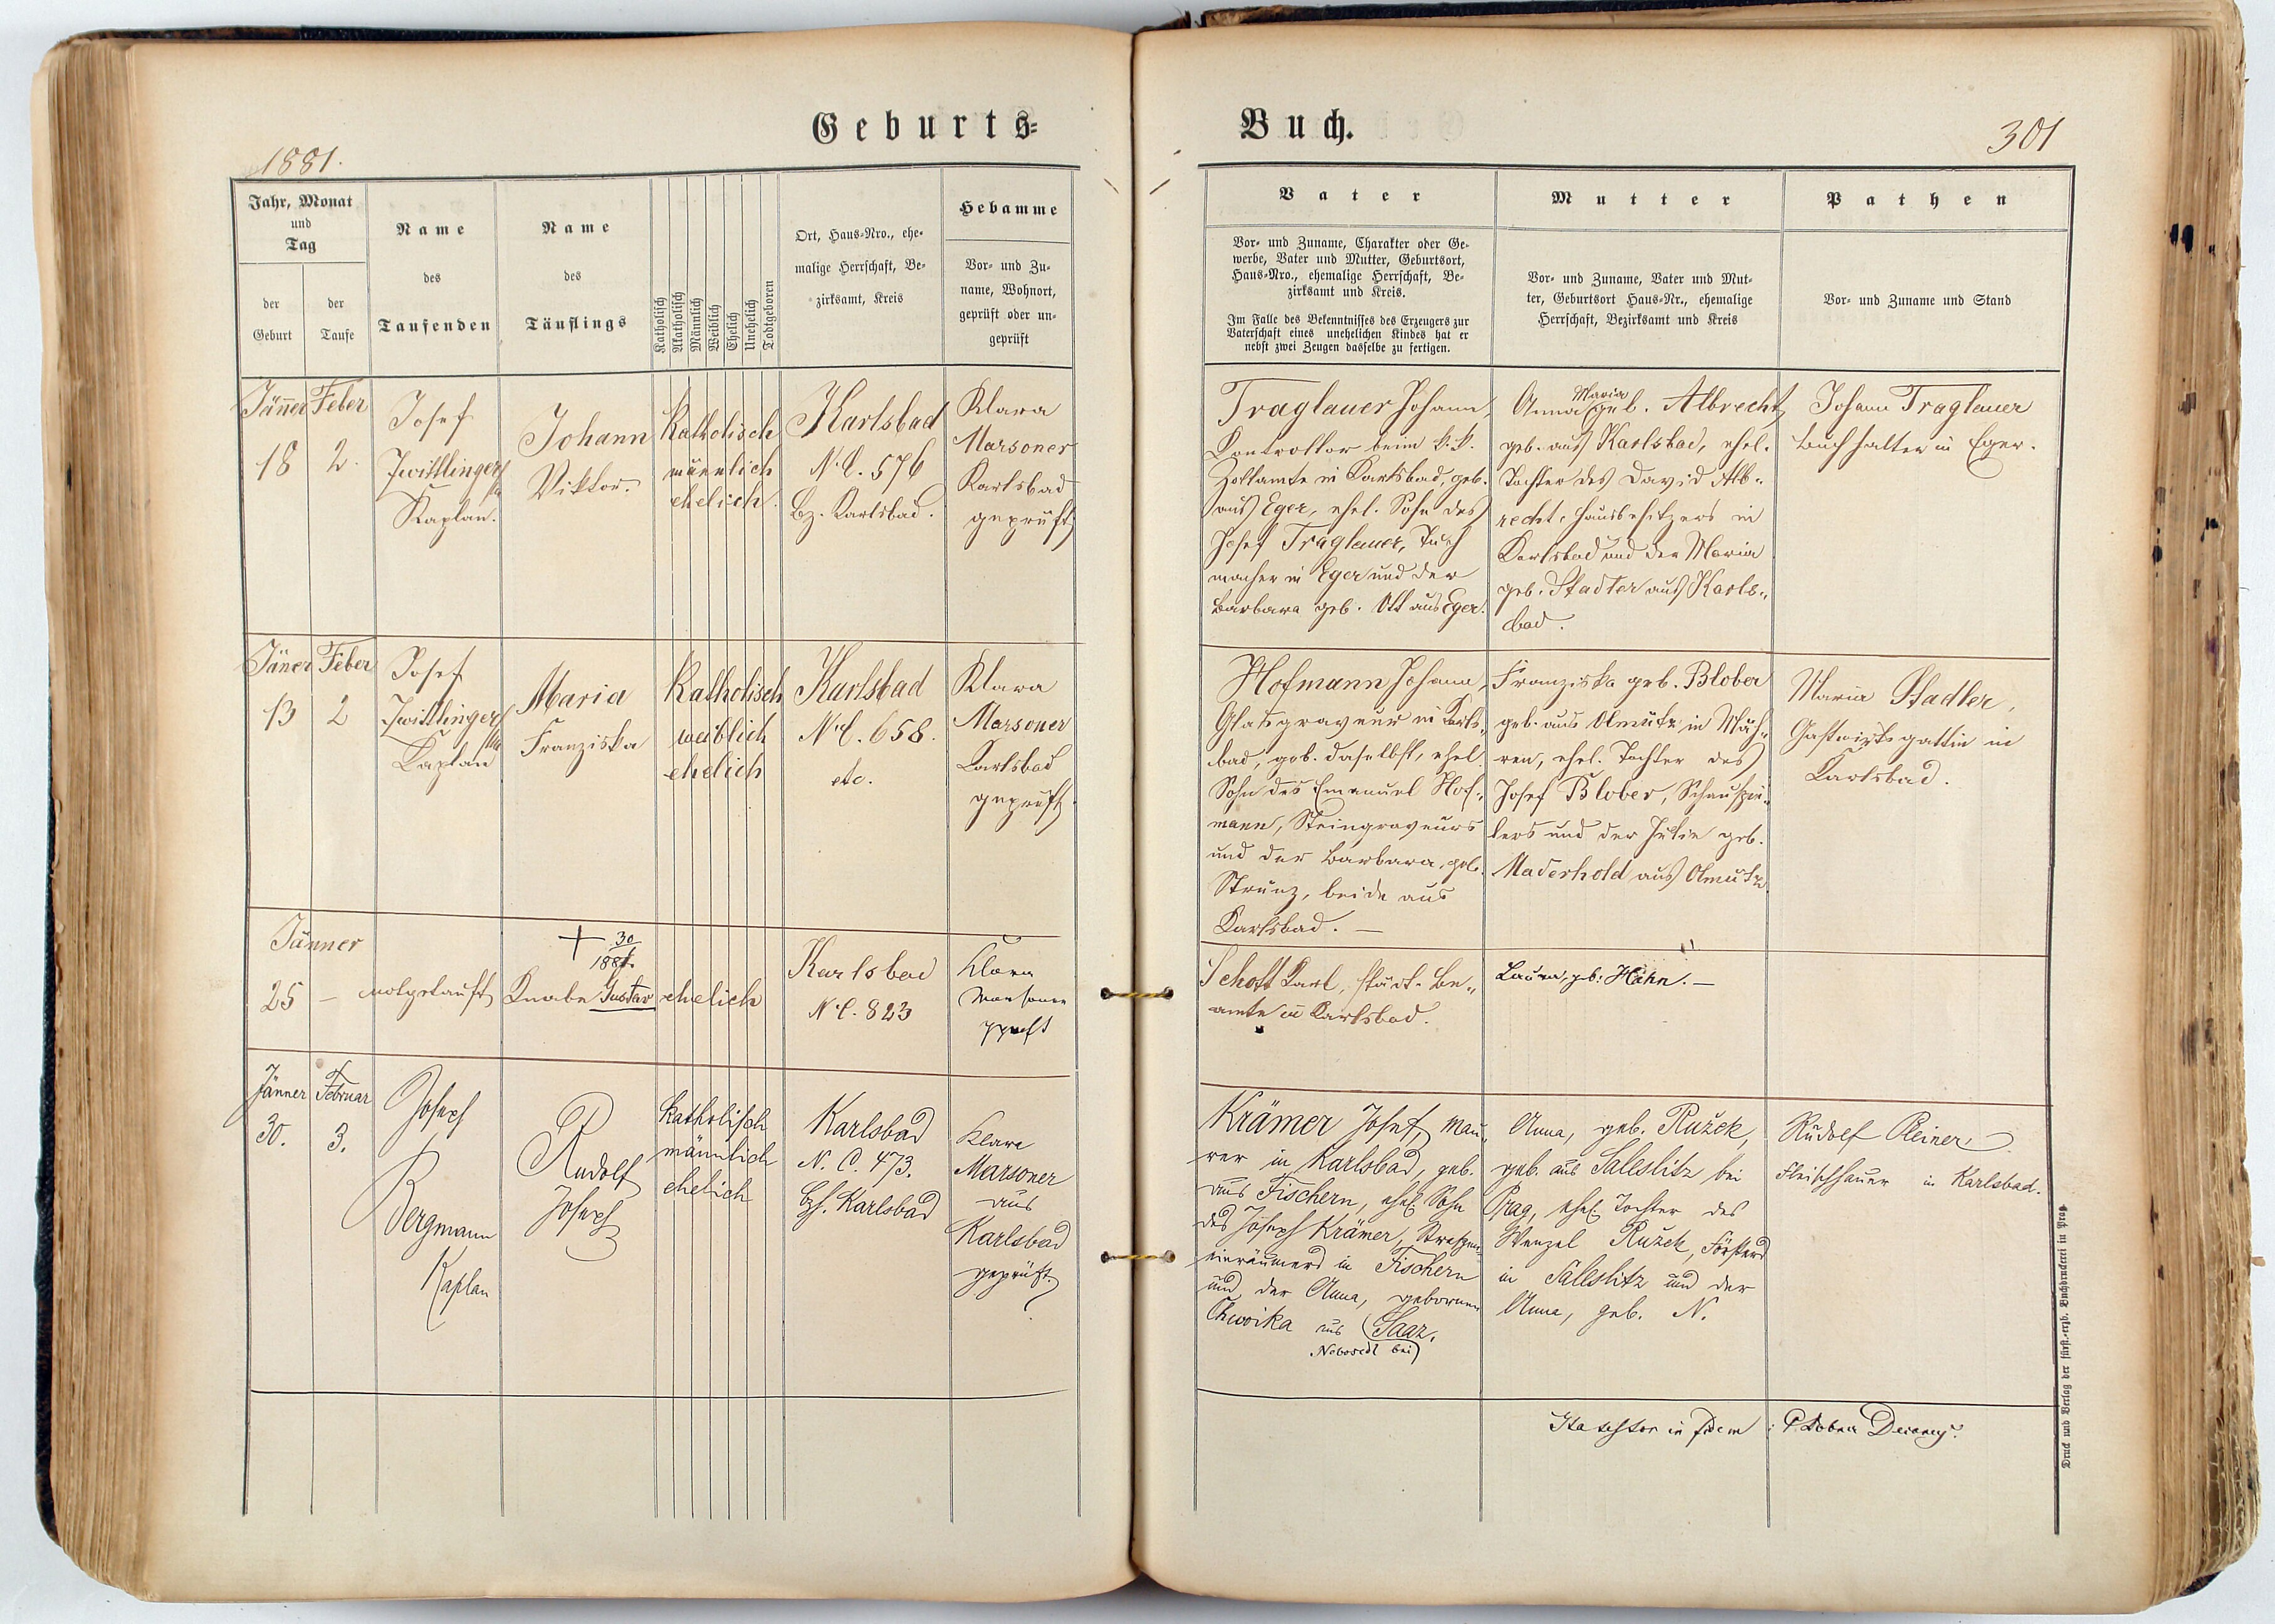 Geburts=
Buch.
1881.
301
Jahr, Monat
und
Tag
der
Geburt
der
Taufe
Name
des
Taufenden
Name
des
Täuflings
Katholisch
Akatholisch
Männlich
Weiblich
Ehelich
Unehelich
Todtgeboren
Ort, Haus-Nro., ehe-
malige Herrschaft, Be-
zirksamt, Kreis
Hebamme
Vor- und Zu-
name, Wohnort,
geprüft oder un-
geprüft
Vater
Vor- und Zuname, Charakter oder Ge-
werbe, Vater und Mutter, Geburtsort,
Haus-Nro., ehemalige Herrschaft, Be-
zirksamt und Kreis.
Im Falle des Bekenntnisses des Erzeugers zur
Vaterschaft eines unehelichen Kindes hat er
nebst zwei Zeugen dasselbe zu fertigen.
Mutter
Vor- und Zuname, Vater und Mut-
ter, Geburtsort Haus-Nr., ehemalige
Herrschaft, Bezirksamt und Kreis
Pathen
Vor- und Zuname und Stand
Jänner
18
Feber
2.
Josef
Zwittlinger
Kaplan.
Johann
Viktor.
Katholisch
männlich
ehelich.
Karlsbad
N.C. 576
Bz. Karlsbad.
Klara
Marsoner
Karlsbad
geprüft
Traglauer Johann,
Controllor beim k.k.
Zollamte in Karlsbad, geb.
aus Eger, ehel. Sohn des
Josef Traglauer, Tuch
macher in Eger und der
Barbara geb. Ott aus Eger.
Maria
Anna geb. Albrecht,
geb. aus Karlsbad, ehel.
Tochter des David Alb-
recht, Hausbesitzers in
Karlsbad und der Maria
geb. Stadler aus Karls-
bad.
Johann Traglauer
Buchhalter in Eger.
Jäner
13
Feber
2
Josef
Zwittlinger
Kaplan
Maria
Franziska
Katholisch
weiblich
ehelich
Karlsbad
N.C. 658.
etc.
Klara
Marsoner
Karlsbad
geprüft.
Hofmann Johann,
Glasgraveur in Karls-
bad, geb. daselbst, ehel.
Sohn des Emanuel Hof-
mann, Steingraveurs
und der Barbara, geb.
Strunz, beide aus
Karlsbad. —
Franziska geb. Blober
geb. aus Olmütz in Mäh-
ren, ehel. Tochter des
Josef Blober, Schauspie-
lers und der Julie geb.
Maderhold aus Olmütz.
Maria Stadler,
Gastwirtsgattin in
Karlsbad.
Jänner
25 —
notgetauft
+ 30/1 881.
Knabe Gustav
ehelich
Karlsbad
N.C. 823
Klara
Marsoner
gprüft
Schott Karl, städt. Be-
amte in Karlsbad.
Laura, geb: Hahn. —
Jänner
30.
Februar
3.
Joseph
Bergmann
Kaplan
Rudolf
Joseph
katholisch
männlich
ehelich
Karlsbad
N. C. 473.
Bz. Karlsbad
Klara
Marsoner
aus
Karlsbad
geprüft.
Krämer Josef, Mau-
rer in Karlsbad, geb.
aus Fischern, ehel. Sohn
des Joseph Krämer, Straßen-
einräumers in Fischern
und der Anna, gebornen
Chwoika aus Saaz.
Nebosedl bei
Anna, geb. Ružek,
geb. aus Saleslitz bei
Prag, ehel. Tochter des
Wenzel Ružek, Försters
in Saleslitz und der
Anna, geb. N.
Rudolf Reiner,
Fleischhauer in Karlsbad.
Ita testor in fidem: P. Dechany.
Druck und Verlag der fürst.-erzb. Buchdruckerei in Prag.